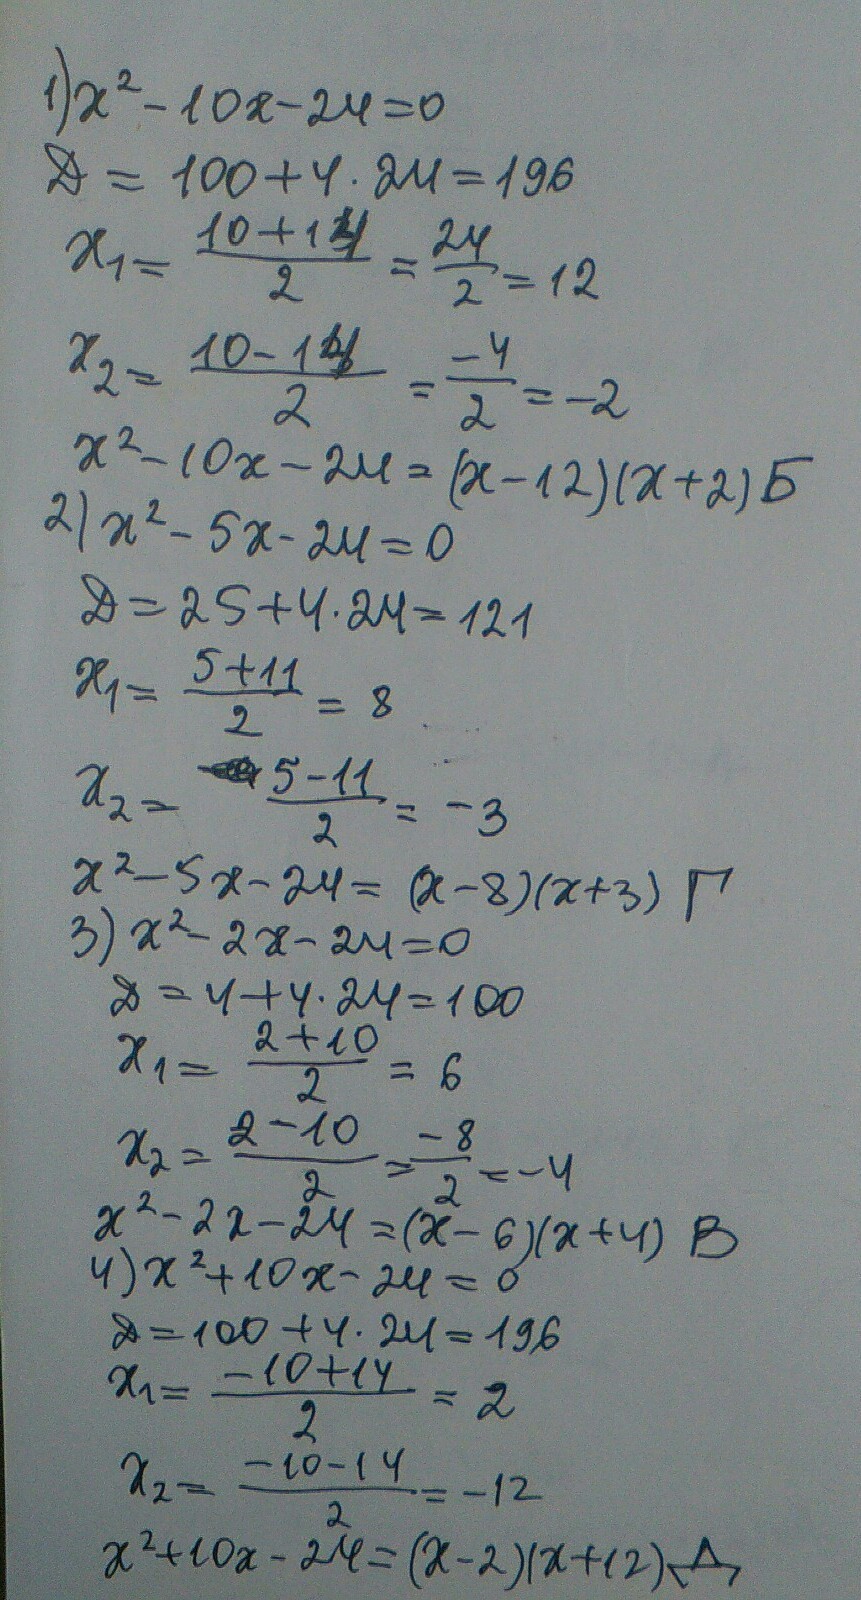 1) x² - 10x - 24 = 0
Д = 100 + 4 · 24 = 196
x₁ = (10 + 14)/2 = 24/2 = 12
x₂ = (10 - 14)/2 = -4/2 = -2
x² - 10x - 24 = (x - 12)(x + 2) Б
2) x² - 5x - 24 = 0
Д = 25 + 4 · 24 = 121
x₁ = (5 + 11)/2 = 8
x₂ = (5 - 11)/2 = -3
x² - 5x - 24 = (x - 8)(x + 3) Г
3) x² - 2x - 24 = 0
Д = 4 + 4 · 24 = 100
x₁ = (2 + 10)/2 = 6
x₂ = (2 - 10)/2 = -8/2 = -4
x² - 2x - 24 = (x - 6)(x + 4) В
4) x² + 10x - 24 = 0
Д = 100 + 4 · 24 = 196
x₁ = (-10 + 14)/2 = 2
x₂ = (-10 - 14)/2 = -12
x² + 10x - 24 = (x - 2)(x + 12) Д